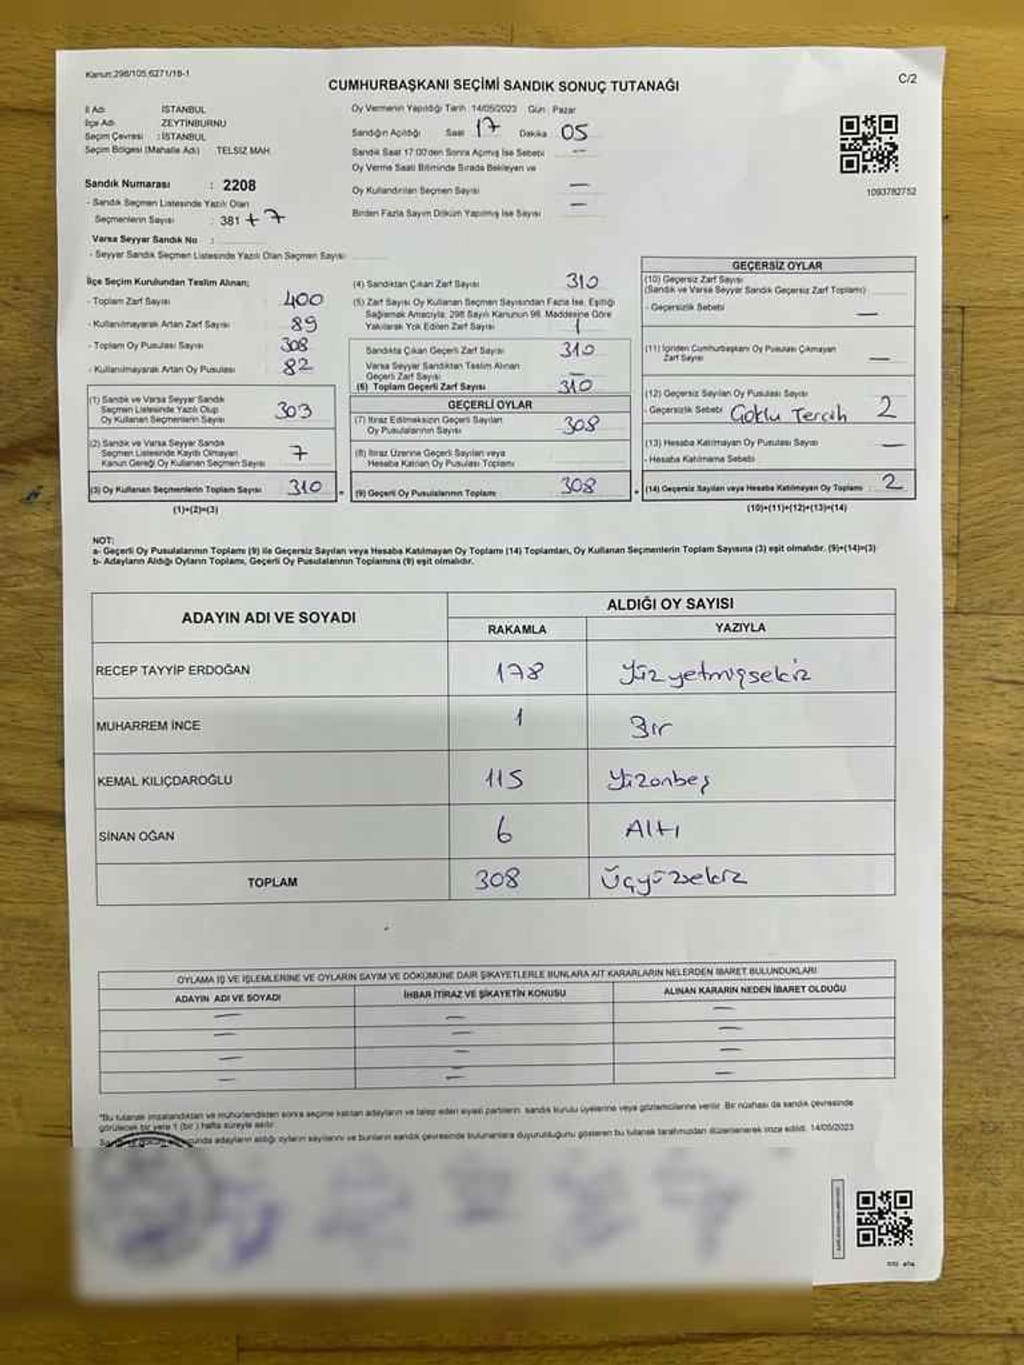 Kanun:298/105,6271/18-1
C/2
CUMHURBAŞKANI SEÇİMİ SANDIK SONUÇ TUTANAĞI
İl Adı İSTANBUL
İlçe Adı ZEYTİNBURNU
Seçim Çevresi : İSTANBUL
Seçim Bölgesi (Mahalle Adı) TELSİZ MAH.
Sandık Numarası : 2208
- Sandık Seçmen Listesinde Yazılı Olan
Seçmenlerin Sayısı : 381 + 7
Varsa Seyyar Sandık No :
- Seyyar Sandık Seçmen Listesinde Yazılı Olan Seçmen Sayısı
Oy Vermenin Yapıldığı Tarih 14/05/2023 Gün : Pazar
Sandığın Açıldığı Saat 17 Dakika 05
Sandık Saat 17:00'den Sonra Açılmış İse Sebebi —
Oy Verme Saati Bitiminde Sırada Bekleyen ve
Oy Kullandırılan Seçmen Sayısı —
Birden Fazla Sayım Döküm Yapılmış İse Sayısı —
1093782752
İlçe Seçim Kurulundan Teslim Alınan;
- Toplam Zarf Sayısı 400
- Kullanılmayarak Artan Zarf Sayısı 89
- Toplam Oy Pusulası Sayısı 308
- Kullanılmayarak Artan Oy Pusulası 82
(1) Sandık ve Varsa Seyyar Sandık
Seçmen Listesinde Yazılı Olup
Oy Kullanan Seçmenlerin Sayısı 303
(2) Sandık ve Varsa Seyyar Sandık
Seçmen Listesinde Kaydı Olmayan
Kanun Gereği Oy Kullanan Seçmen Sayısı 7
(3) Oy Kullanan Seçmenlerin Toplam Sayısı 310
(1)+(2)=(3)
(4) Sandıktan Çıkan Zarf Sayısı 310
(5) Zarf Sayısı Oy Kullanan Seçmen Sayısından Fazla İse, Eşitliği
Sağlamak Amacıyla; 298 Sayılı Kanunun 98. Maddesine Göre
Yakılarak Yok Edilen Zarf Sayısı
Sandıkta Çıkan Geçerli Zarf Sayısı 310
Varsa Seyyar Sandıktan Teslim Alınan
Geçerli Zarf Sayısı —
(6) Toplam Geçerli Zarf Sayısı 310
GEÇERLİ OYLAR
(7) İtiraz Edilmeksizin Geçerli Sayılan
Oy Pusulalarının Sayısı 308
(8) İtiraz Üzerine Geçerli Sayılan veya
Hesaba Katılan Oy Pusulası Toplamı
= (9) Geçerli Oy Pusulalarının Toplamı 308
GEÇERSİZ OYLAR
(10) Geçersiz Zarf Sayısı
(Sandık ve Varsa Seyyar Sandık Geçersiz Zarf Toplamı)
- Geçersizlik Sebebi —
(11) İçinden Cumhurbaşkanı Oy Pusulası Çıkmayan
Zarf Sayısı —
(12) Geçersiz Sayılan Oy Pusulası Sayısı
- Geçersizlik Sebebi Çoklu Tercih 2
(13) Hesaba Katılmayan Oy Pusulası Sayısı —
- Hesaba Katılmama Sebebi
+ (14) Geçersiz Sayılan veya Hesaba Katılmayan Oy Toplamı : 2
(10)+(11)+(12)+(13)=(14)
NOT:
a- Geçerli Oy Pusulalarının Toplamı (9) ile Geçersiz Sayılan veya Hesaba Katılmayan Oy Toplamı (14) Toplamları, Oy Kullanan Seçmenlerin Toplam Sayısına (3) eşit olmalıdır. (9)+(14)=(3)
b- Adayların Aldığı Oyların Toplamı, Geçerli Oy Pusulalarının Toplamına (9) eşit olmalıdır.
ADAYIN ADI VE SOYADI ALDIĞI OY SAYISI
RAKAMLA YAZIYLA
RECEP TAYYİP ERDOĞAN 178 Yüzyetmişsekiz
MUHARREM İNCE 1 Bir
KEMAL KILIÇDAROĞLU 115 Yüzonbeş
SİNAN OĞAN 6 Altı
TOPLAM 308 Üçyüzsekiz
OYLAMA İŞ VE İŞLEMLERİNE VE OYLARIN SAYIM VE DÖKÜMÜNE DAİR ŞİKAYETLERLE BUNLARA AİT KARARLARIN NELERDEN İBARET BULUNDUKLARI
ADAYIN ADI VE SOYADI İHBAR İTİRAZ VE ŞİKAYETİN KONUSU ALINAN KARARIN NEDEN İBARET OLDUĞU
— — —
— — —
— — —
— — —
"Bu tutanak imzalandıktan ve mühürlendikten sonra seçime katılan adayların ve talep eden siyasi partilerin sandık kurulu üyelerine veya gözlemcilerine verilir. Bir nüshası da sandık çevresinde
görülecek bir yere 1 (bir) hafta süreyle asılır.
adayların aldığı oyların sayılarını ve bunların sandık çevresinde bulunanlara duyurulduğunu gösteren bu tutanak tarafımızdan düzenlenerek imza edildi. 14/05/2023